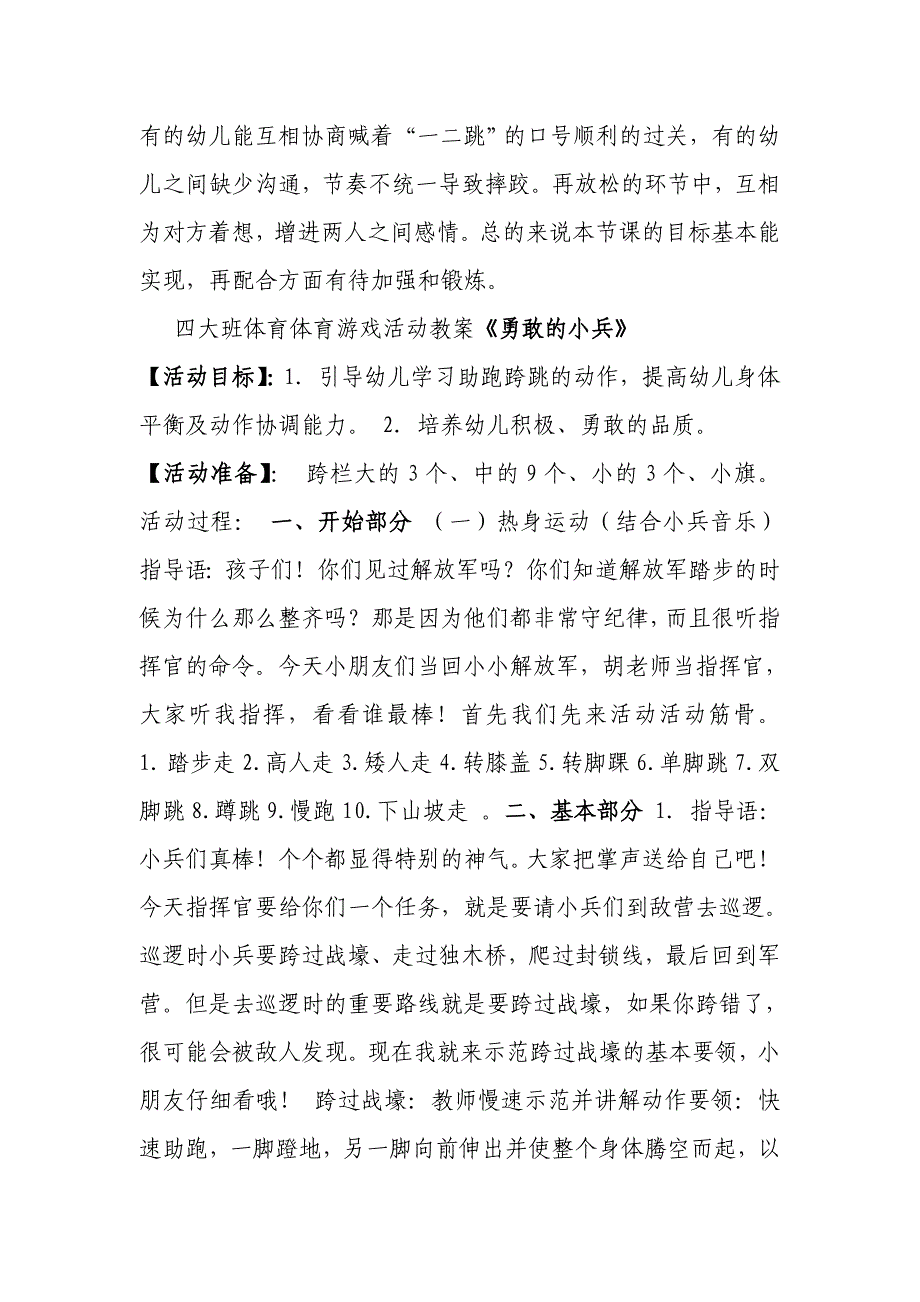 有的幼儿能互相协商喊着“一二跳”的口号顺利的过关，有的幼
儿之间缺少沟通，节奏不统一导致摔跤。再放松的环节中，互相
为对方着想，增进两人之间感情。总的来说本节课的目标基本能
实现，再配合方面有待加强和锻炼。
四大班体育体育游戏活动教案《勇敢的小兵》
【活动目标】：1．引导幼儿学习助跑跨跳的动作，提高幼儿身体
平衡及动作协调能力。 2．培养幼儿积极、勇敢的品质。
【活动准备】： 跨栏大的 3 个、中的 9 个、小的 3 个、小旗。
活动过程： 一、开始部分 （一）热身运动（结合小兵音乐）
指导语：孩子们！你们见过解放军吗？你们知道解放军踏步的时
候为什么那么整齐吗？那是因为他们都非常守纪律，而且很听指
挥官的命令。今天小朋友们当回小小解放军，胡老师当指挥官，
大家听我指挥，看看谁最棒！首先我们先来活动活动筋骨。
1.踏步走 2.高人走 3.矮人走 4.转膝盖 5.转脚踝 6.单脚跳 7.双
脚跳 8.蹲跳 9.慢跑 10.下山坡走 。二、基本部分 1．指导语：
小兵们真棒！个个都显得特别的神气。大家把掌声送给自己吧！
今天指挥官要给你们一个任务，就是要请小兵们到敌营去巡逻。
巡逻时小兵要跨过战壕、走过独木桥，爬过封锁线，最后回到军
营。但是去巡逻时的重要路线就是要跨过战壕，如果你跨错了，
很可能会被敌人发现。现在我就来示范跨过战壕的基本要领，小
朋友仔细看哦！ 跨过战壕：教师慢速示范并讲解动作要领：快
速助跑，一脚蹬地，另一脚向前伸出并使整个身体腾空而起，以